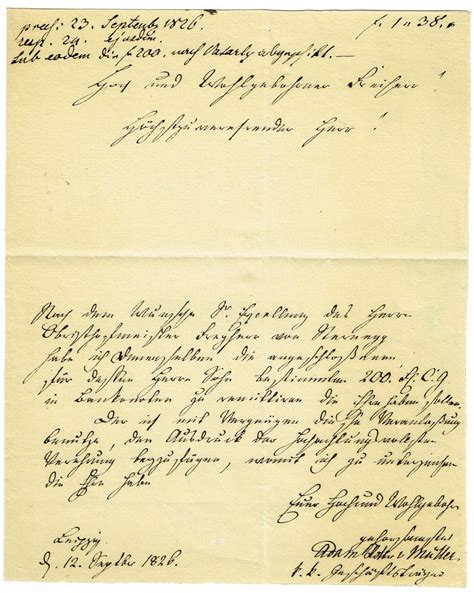 praes: 23. Septemb: 1826.
resp. 24. ejusdem. f. 1 " 38. "
sub eodem die f 200. nach abgeschikt. —
Hoch und Wohlgebohrner Freiherr!
Höchstzuverehrender Herr!
Nach dem Wunsche Sr. Excellenz des Herrn
Obristhofmeister Freyherr von
habe ich Denenselben die angeschloßenen
für deßen Herrn Sohn bestimmten 200. f. C. G
in Banknoten zu remittiren die Ehre haben sollen.
Der ich mit Vergnügen diese Veranlaßung
benutze, den Ausdruck der hochachtungsvollsten
Verehrung beyzufügen, womit ich zu unterzeichnen
die Ehre habe
Euer Hoch und Wohlgebohrn
Leipzig gehorsamster
d. 12. Septber 1826. Adam v Müller
k. k. Geschäftsträger